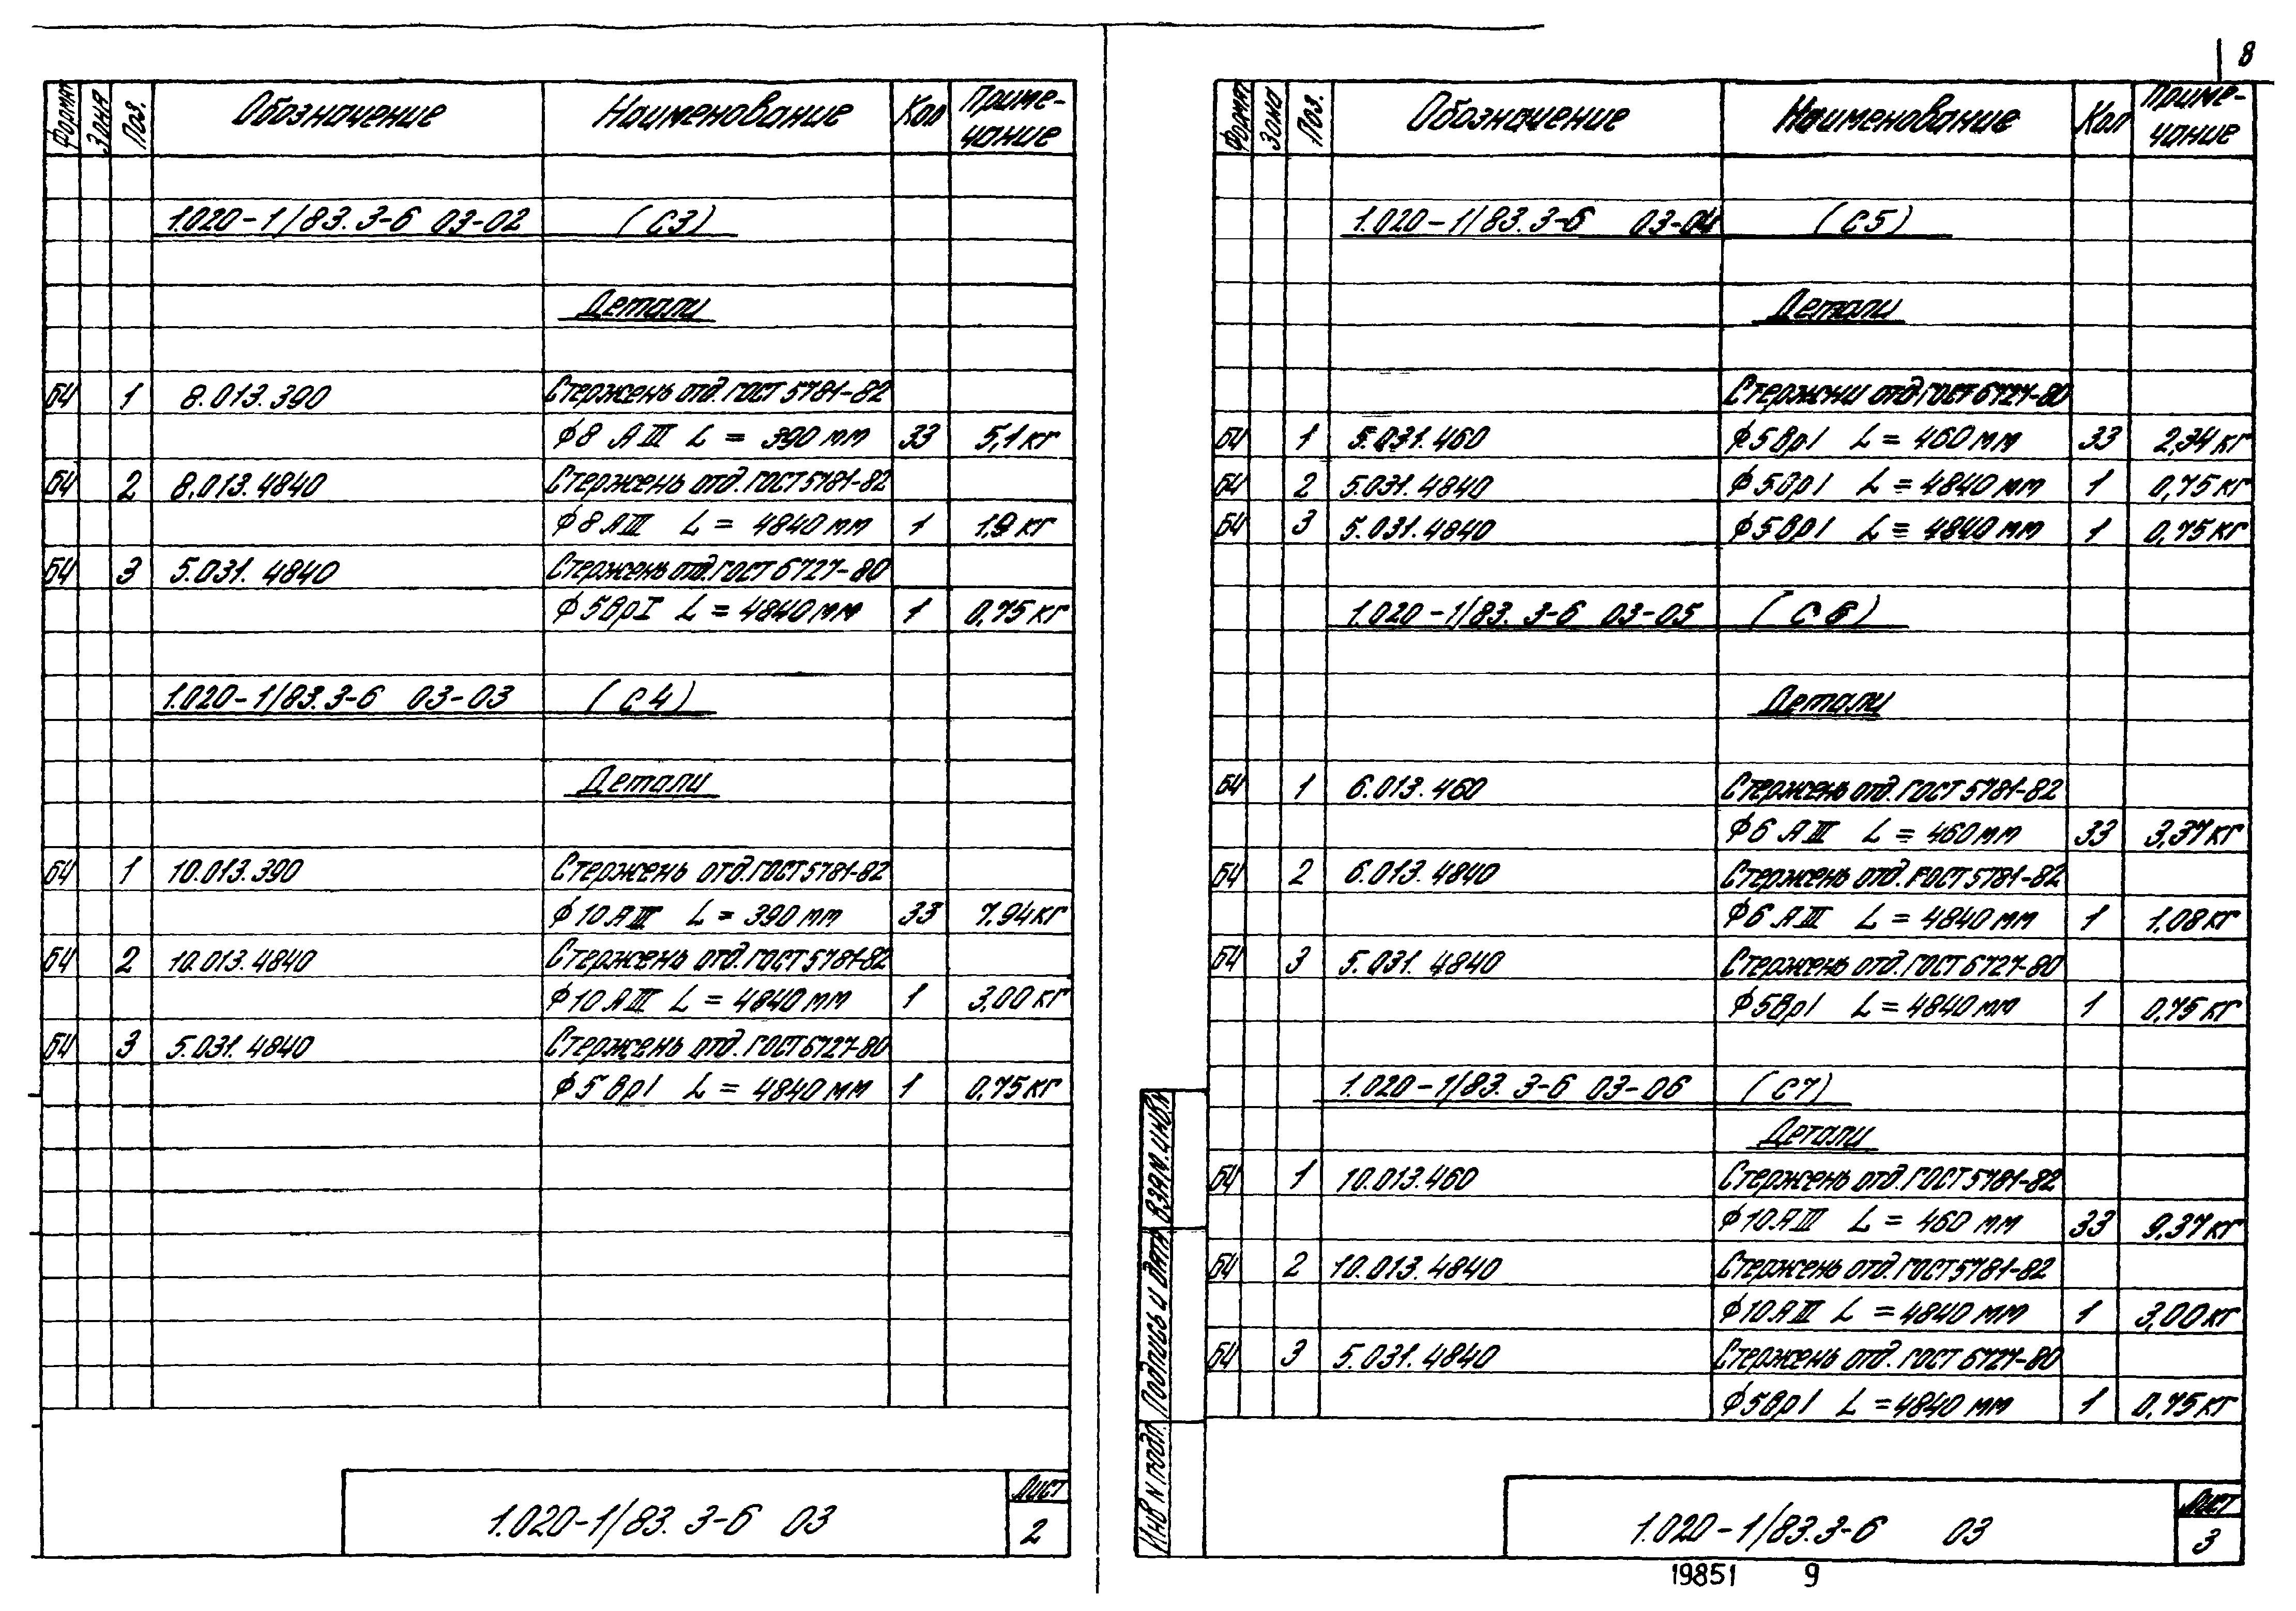 Формат Зона Поз. Обозначение Наименование Кол Приме-
чание
1.020-1/83.3-6 03-02 (С3)
Детали
БЧ 1 8.013.390 Стержень отд. ГОСТ 5781-82
ф8 АIII L = 390 мм 33 5,1 кг
БЧ 2 8.013.4840 Стержень отд. ГОСТ 5781-82
ф8 АIII L = 4840 мм 1 1,9 кг
БЧ 3 5.031.4840 Стержень отд. ГОСТ 6727-80
ф5ВрI L = 4840 мм 1 0,75 кг
1.020-1/83.3-6 03-03 (С4)
Детали
БЧ 1 10.013.390 Стержень отд. ГОСТ 5781-82
ф10 АIII L = 390 мм 33 7.94 кг
БЧ 2 10.013.4840 Стержень отд. ГОСТ 5781-82
ф10 АIII L = 4840 мм 1 3,00 кг
БЧ 3 5.031.4840 Стержень отд. ГОСТ 6727-80
ф5 ВрI L = 4840 мм 1 0,75 кг
1.020-1/83.3-6 03
Лист
2
8
Формат Зона Поз. Обозначение Наименование Кол Приме-
чание
1.020-1/83.3-6 03-04 (С5)
Детали
Стержни отд. ГОСТ 6727-80
БЧ 1 5.031.460 ф5ВрI L = 460 мм 33 2,34 кг
БЧ 2 5.031.4840 ф5ВрI L = 4840 мм 1 0,75 кг
БЧ 3 5.031.4840 ф5ВрI L = 4840 мм 1 0,75 кг
1.020-1/83.3-6 03-05 (С6)
Детали
БЧ 1 6.013.460 Стержень отд. ГОСТ 5781-82
ф6 АIII L = 460 мм 33 3,37 кг
БЧ 2 6.013.4840 Стержень отд. ГОСТ 5781-82
ф6 АIII L = 4840 мм 1 1,08 кг
БЧ 3 5.031.4840 Стержень отд. ГОСТ 6727-80
ф5ВрI L = 4840 мм 1 0,75 кг
1.020-1/83.3-6 03-06 (С7)
Детали
БЧ 1 10.013.460 Стержень отд. ГОСТ 5781-82
ф10 АIII L = 460 мм 33 9,37 кг
БЧ 2 10.013.4840 Стержень отд. ГОСТ 5781-82
ф10 АIII L = 4840 мм 1 3,00 кг
БЧ 3 5.031.4840 Стержень отд. ГОСТ 6727-80
ф5ВрI L = 4840 мм 1 0,75 кг
Взам. инв. N
Подпись и дата
Инв N подл.
1.020-1/83.3-6 03
Лист
3
19851 9